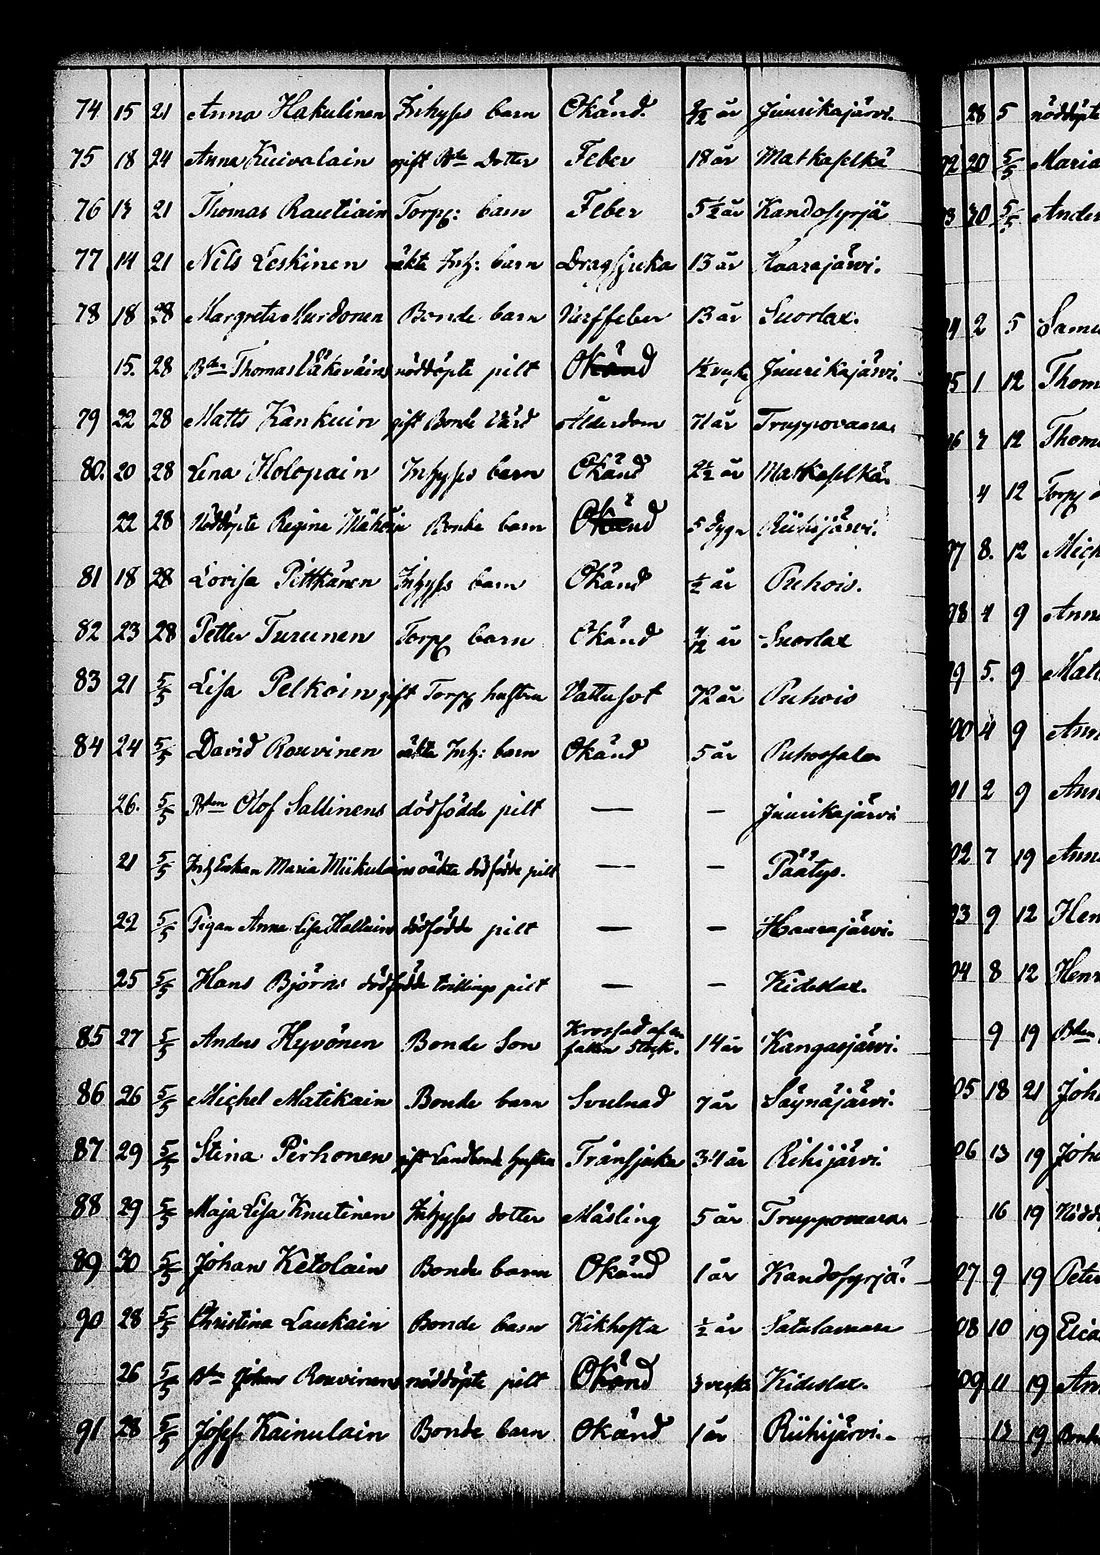 74 15 21 Anna Hakulinen Inhyses barn Okänd. 9/12 år Juurikajärvi.
75 18 24 Anna Kuivalain gift Bde Dotter Feber 18 år Matkaselkä
76 13 21 Thomas Rautiain Torp: barn Feber 5 1/2 år Kandosyrjä
77 14 21 Nils Leskinen äkta Inh: barn Dragsjuka 13 år Haarajärvi.
78 18 28 Margreta Hurdonen Bonde barn Nerffeber 13 år Suorlax.
15. 28 Bdes Thomas nöddöpte pilt Okänd Juurikajärvi.
79 22 28 Matts Kankuin gift Bonde Värd Ålderdom 71 år Truppovaara.
80. 20 28 Lena Holopain Inhyses barn Okänd 2 1/2 år Matkaselkä.
22 28 Nöddöpte Regina Bonde barn Okänd 5 dygn Riihijärvi.
81 18 28 Lovisa Pitkänen Inhyses barn Okänd 1/2 år Puhois.
82 23 28 Petter Turunen Torp barn Okänd år Suorlax
83 21 5/5 Lisa Pelkoin gift Torp hustru Vattusot 72 år Puhois
84 24 5/5 David Rouvinen äkta Inh: barn Okänd 5 år Puhossalo
26. 5/5 Bden Olof Sallinens dödfödde pilt — — Juurikajärvi
21 5/5 Maria Miikulains oäkta dödfödde pilt — — Päätys.
22 5/5 Pigan Anna Lisa dödfödde pilt — — Haarajärvi.
25 5/5 Hans Björns dödfödde tvillings pilt — — Kideslax.
85 27 5/5 Anders Hyvönen Bonde Son Krossad af en fallen Stock. 14 år Kangasjärvi.
86 26 5/5 Michel Matikain Bonde barn Svulnad 7 år Säynäjärvi.
87 29 5/5 Stina Pirhonen gift Landbonde hustru Trånsjuka 34 år Riihijärvi.
88 29 5/5 Maja Lisa Knutinen Inhyses dotter Mässling 5 år Truppovaara.
89 30 5/5 Johan Ketolain Bonde barn Okänd 1 år Kandosyrjä.
90 28 5/5 Christina Laukain Bonde barn Kikhosta 1/2 år Satulavaara
26 5/5 Bde Johans Rouvinens nöddöpte pilt Okänd 3 veckor Kideslax.
91 28 5/5 Josef Kainulain Bonde barn Okänd 1 år Riihijärvi.
28 5 nöddöpte
20 5/5 Maria
30 5/5 Ander
2 5
1 12 Thom
7 12 Thom
4 12 Torp
8. 12 Mich
4 9 Ann
5. 9 Matt
4 9 Ann
2 9 Ann
7 19 Ann
9 12 Hen
8 12 Henr
9 19 Bden
18 21 Joh
13 19 Joh
16 19 Nödd
9 19 Peter
10 19
11 19 An
13 19 Bonde